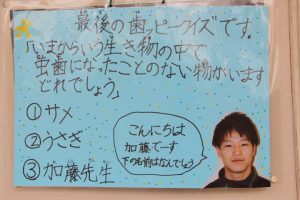 最後の歯ッピークイズです。
「いまからいう生き物の中で
虫歯になったことのない物がいます
どれでしょう」
①サメ
②うさぎ
③加藤先生
こんにちは
加藤でーす
下の名前はなんでしょう